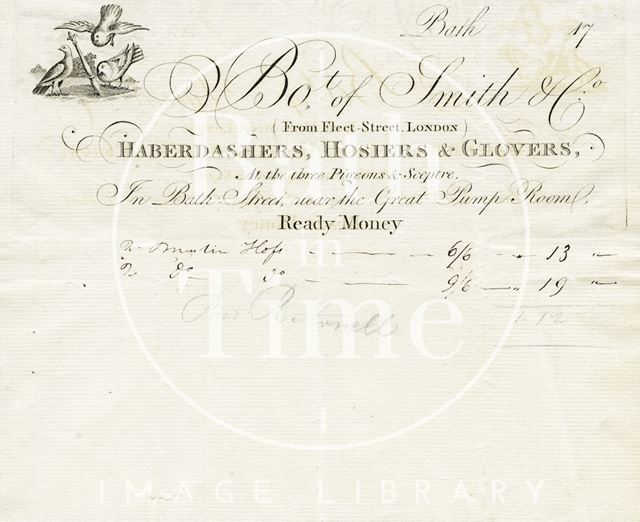 Bath 17
Bo.t of Smith & Co.
(From Fleet-Street, LONDON)
HABERDASHERS, HOSIERS & GLOVERS,
At the three Pigeons & Sceptre.
In Bath-Street, near the Great Pump Room.
Ready Money
2 Muslin 6/6 - " 13 "
2 Do Do 9/6 - " 19 "
1. 12
Bath
in
Time
IMAGE LIBRARY